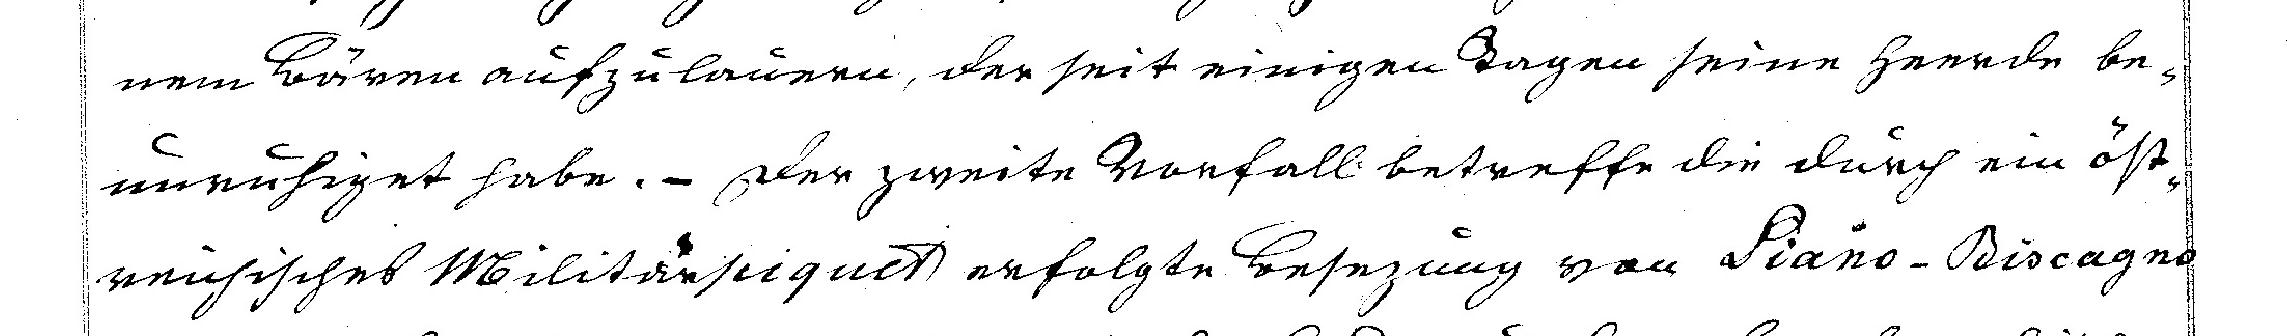 nem Bären aufzulauern, der seit einigen Tagen seine Heerde be-
unruhiget habe. - Der zweite Vorfall betreffe die durch ein öst-
reichisches Militärpiquet erfolgte Besezung von Piano-Biscagno